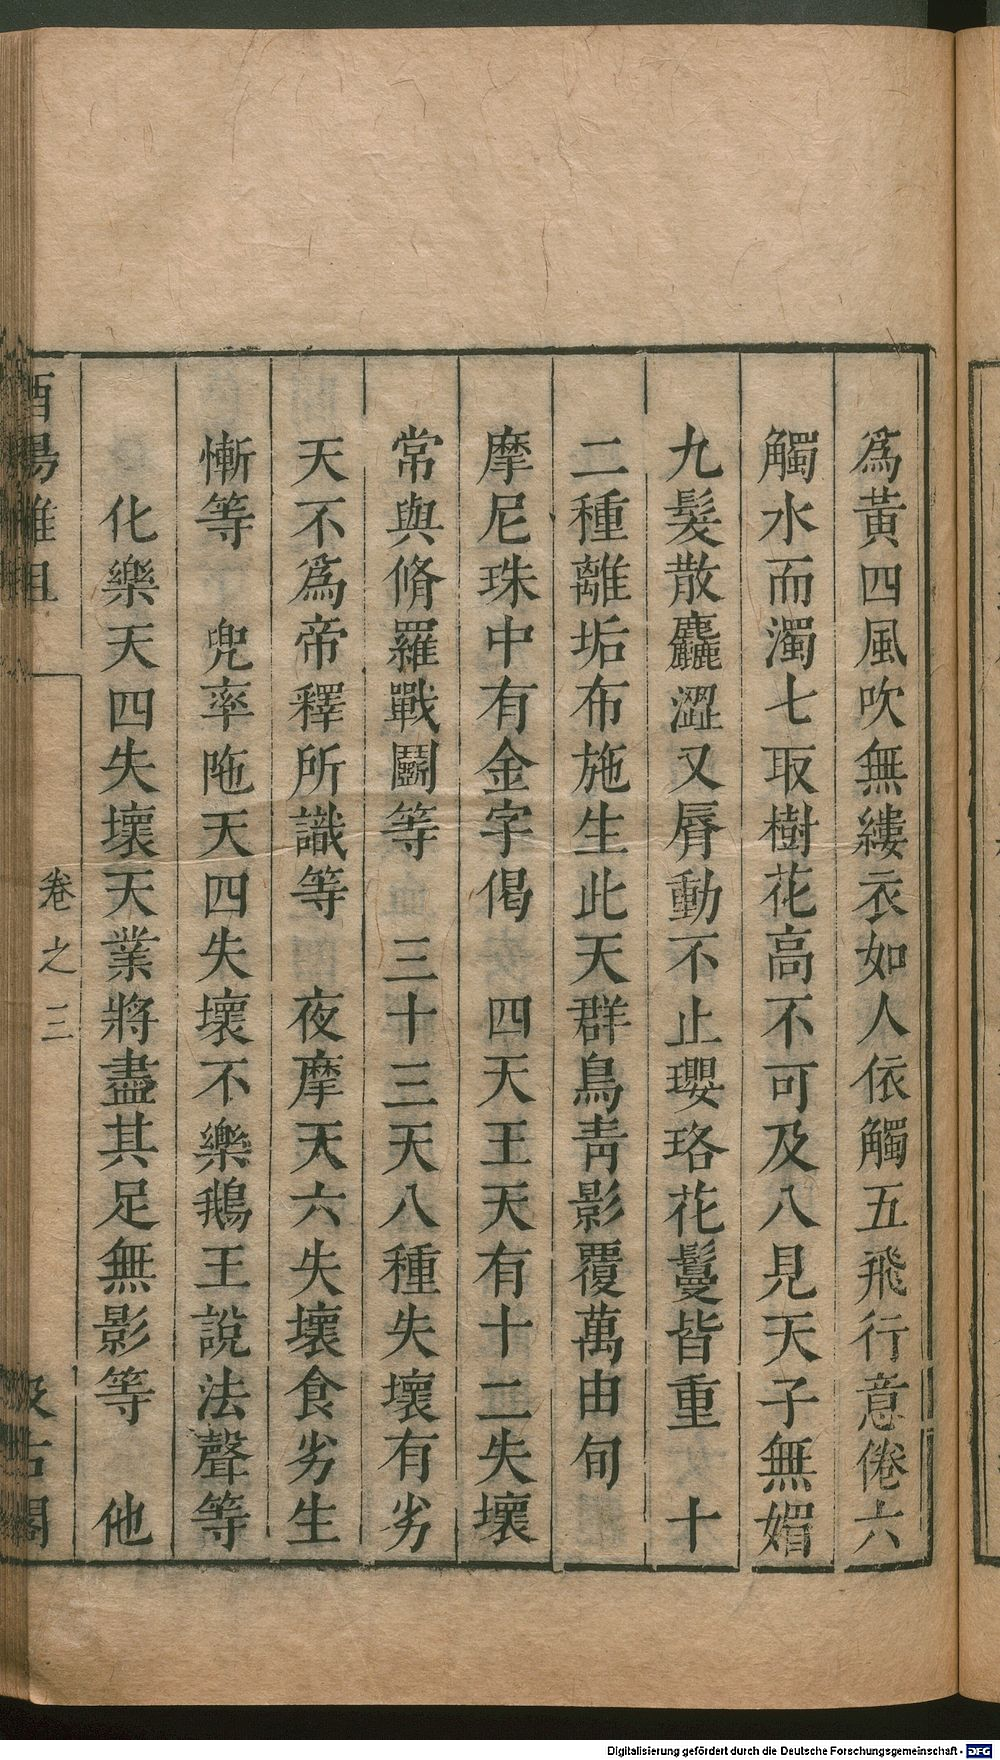 為黃四風吹無縷衣如人依觸五飛行意倦六
觸水而濁七取樹花高不可及八見天子無媚
九髮散麤澀又脣動不止瓔珞花鬘皆重　十
二種離垢布施生此天群鳥青影覆萬由旬
摩尼珠中有金字偈　四天王天有十二失壞
常與脩羅戰鬬等　三十三天八種失壞有劣
天不為帝釋所識等　夜摩天六失壞食劣生
慚等　兜率陁天四失壞不樂鵝王說法聲等
　化樂天四失壞天業將盡其足無影等　他
酉陽雜俎
卷之三
汲古閣
Digitalisierung gefördert durch die Deutsche Forschungsgemeinschaft - DFG